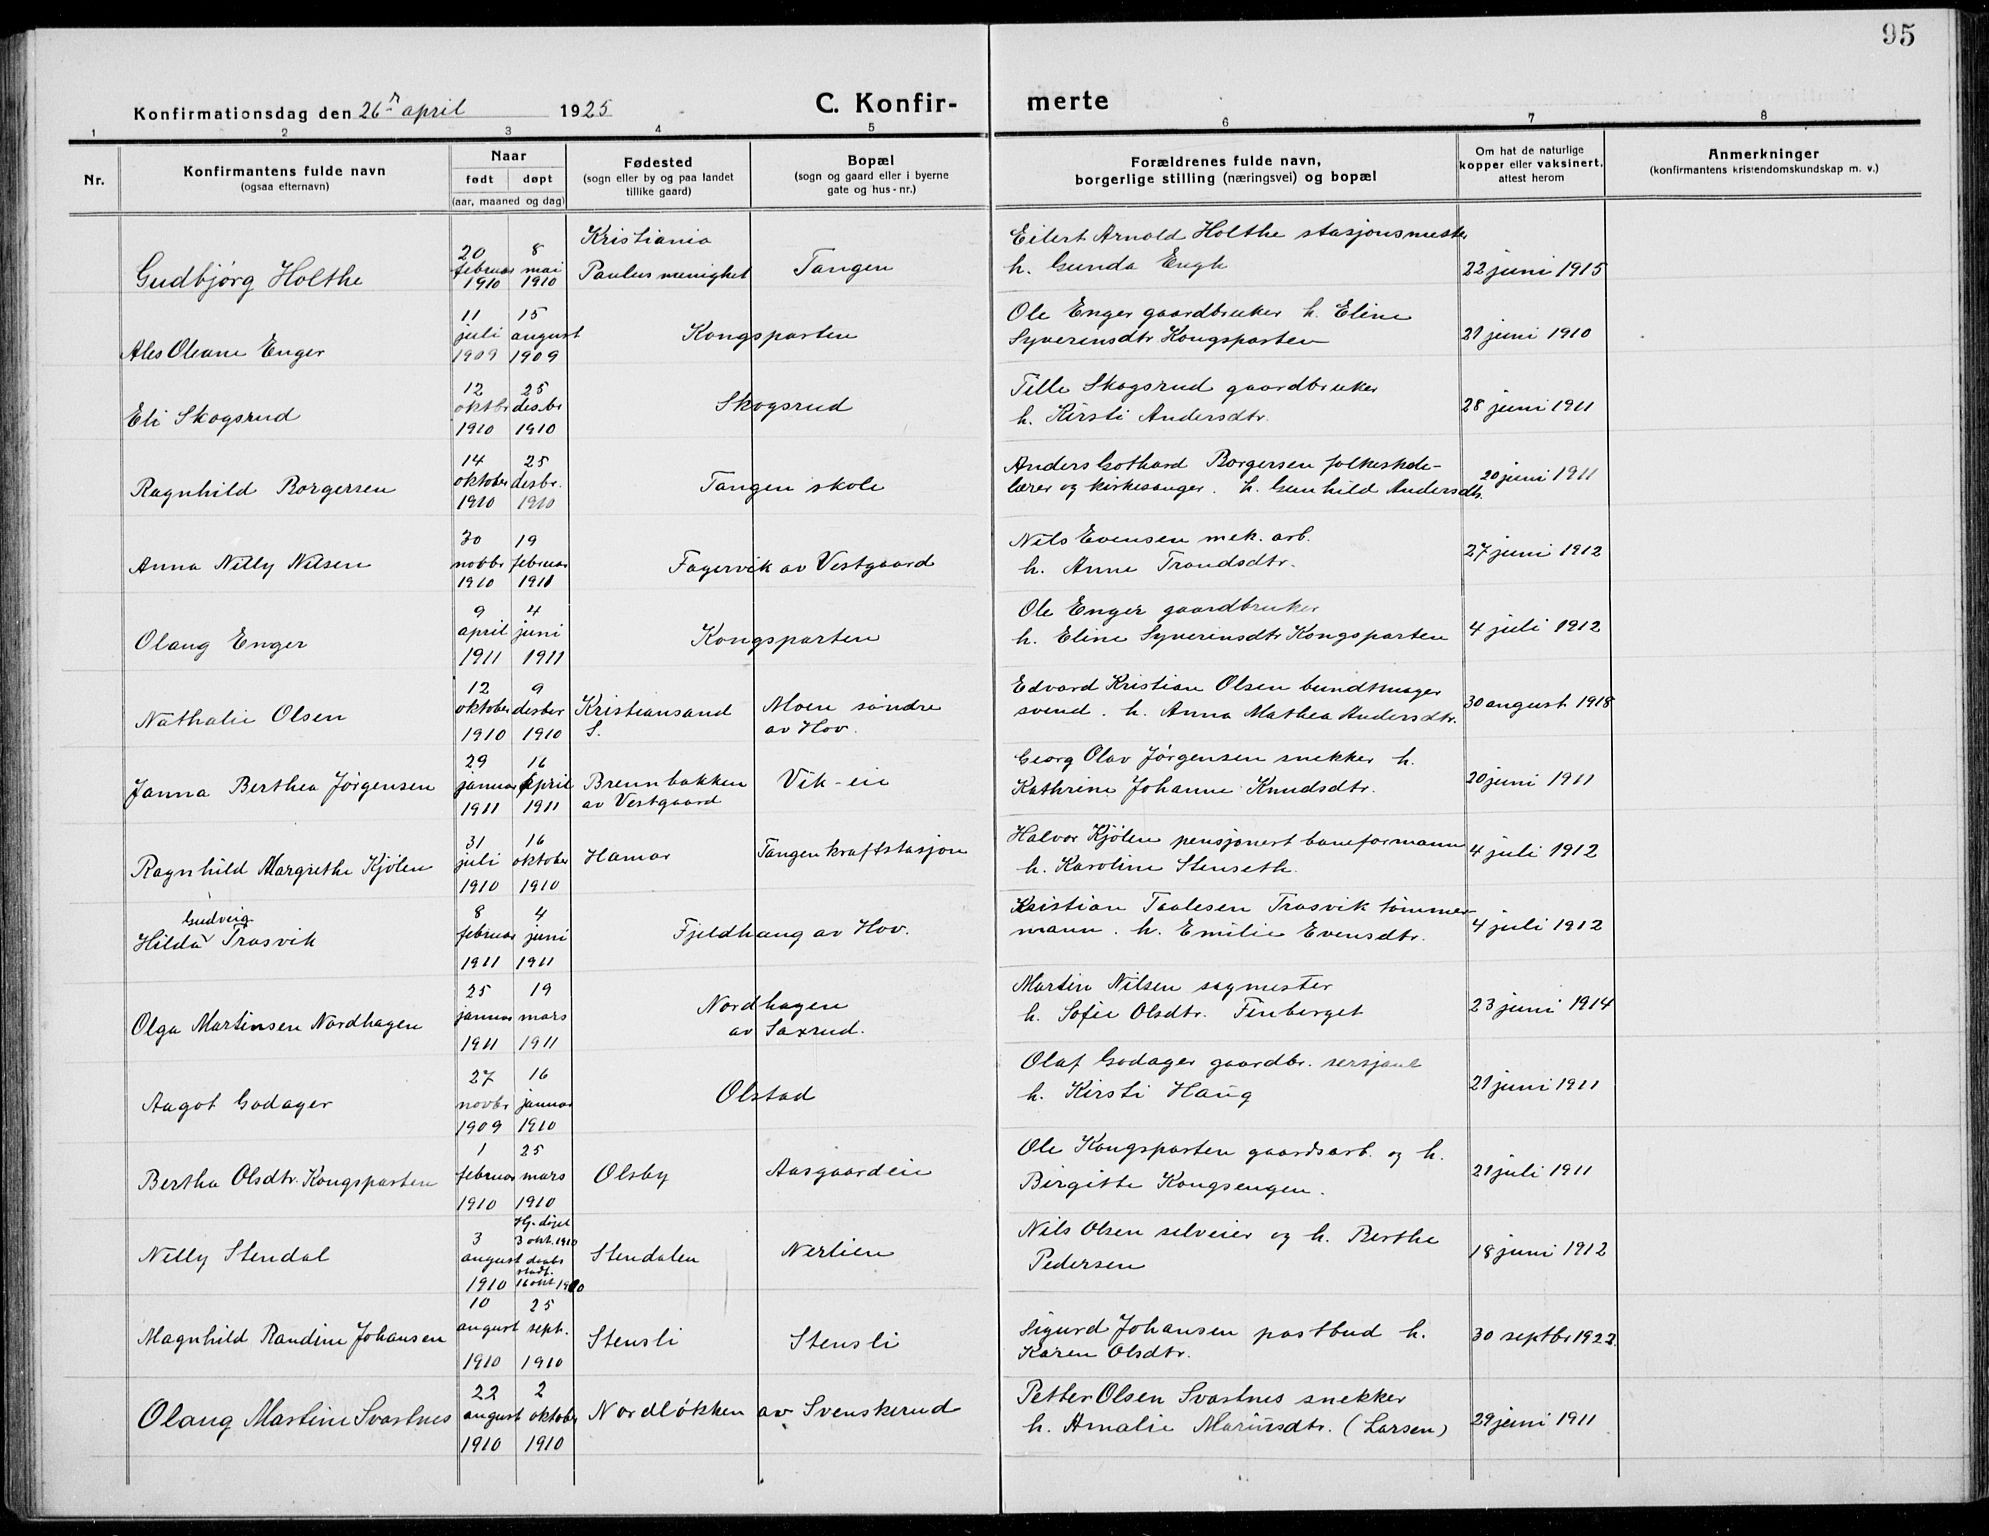 95
Konfirmationsdag den 26. april 1925
C. Konfir-
merte
1 2 3 4 5 6 7 8
Nr.
Konfirmantens fulde navn
(ogsaa efternavn)
Naar
født døpt
(aar, maaned og dag)
Fødested
(sogn eller by og paa landet
tillike gaard)
Bopæl
(sogn og gaard eller i byerne
gate og hus-nr.)
Forældrenes fulde navn,
borgerlige stilling (næringsvei) og bopæl
Om hat de naturlige
kopper eller vaksinert,
attest herom
Anmerkninger
(konfirmantens kristendomskundskap m. v.)
Gudbjørg Holthe
20 februar 1910
8 mai 1910
Kristiania
Paulus menighet
Tangen
Eilert Arnold Holthe stasjonsmester
h. Gunda Engh
22 juni 1915
Ales Oleane Enger
11 juli 1909
15 august 1909
Kongsparten
Ole Enger gaardbruker h. Eline
Syverinsdtr Kongsparten
21 juni 1910
Eli Skogsrud
12 oktbr 1910
25 desbr 1910
Skogsrud
Tille Skogsrud gaardbruker
h. Kirsti Andersdtr.
28 juni 1911
Ragnhild Borgersen
14 oktober 1910
25 desbr. 1910
Tangen skole
Anders Gothard Borgersen folkeskole-
lærer og kirkesanger. h. Gunhild Andersdtr.
20 juni 1911
Anna Nelly Nilsen
30 novbr 1910
19 februar 1911
Fagervik av Vestgaard
Nils Evensen mek. arb.
h. Anne Trondsdtr.
27 juni 1912
Olaug Enger
9 april 1911
4 juni 1911
Kongsparten
Ole Enger gaardbruker
h. Eline Syverinsdtr Kongsparten
4 juli 1912
Nathalie Olsen
12 oktober 1910
9 desber 1910
Kristiansand
S.
Moen søndre
av Hov.
Edvard Kristian Olsen bundtmager
svend. h. Anna Mathea Andersdtr.
30 august 1918
Janna Berthea Jørgensen
29 januar 1911
16 april 1911
Brennbakken
av Vestgaard
Vik-eie
Georg Olav Jørgensen snekker h.
Kathrine Johanne Knudsdtr.
20 juni 1911
Ragnhild Margrethe Kjølen
31 juli 1910
16 oktober 1910
Hamar
Tangen kraftstasjon
Halvor Kjølen pensjonert baneformann
h. Karoline Stenseth.
4 juli 1912
Gudveig
Hilda Trasvik
8 februar 1911
4 juni 1911
Fjeldhaug av Hov.
Kristian Taalesen Trasvik tømmer
mann. h. Emilie Evensdtr.
4 juli 1912
Olga Martinsen Nordhagen
25 januar 1911
19 mars 1911
Nordhagen
av Saxrud.
Martin Nilsen sagmester
h. Sofie Olsdtr. Finberget
23 juni 1914
Aagot Godager
27 novbr 1909
16 januar 1910
Olstad
Olaf Godager gaardbr. sersjant
h. Kirsti Haug
21 juni 1911
Bertha Olsdtr. Kongsparten
1 februar 1910
25 mars 1910
Olsby
Aasgaardeie
Ole Kongsparten gaardsarb. og h.
Birgitte Kongsengen.
21 juli 1911
Nelly Stendal
3 august 1910
Hj. døpt
3 okt. 1910
daabs
stadf.
16 okt 1910
Stendalen
Nerlien
Nils Olsen selveier og h. Berthe
Pedersen
18 juni 1912
Magnhild Randine Johansen
10 august 1910
25 sept. 1910
Stensli
Stensli
Sigurd Johansen postbud h.
Karen Olsdtr.
30 septbr 1922
Olaug Martine Svartnes
22 august 1910
2 oktober 1910
Nordløkken av Svenskerud
Petter Olsen Svartnes snekker
h. Amalie Mariusdtr. (Larsen)
29 juni 1911